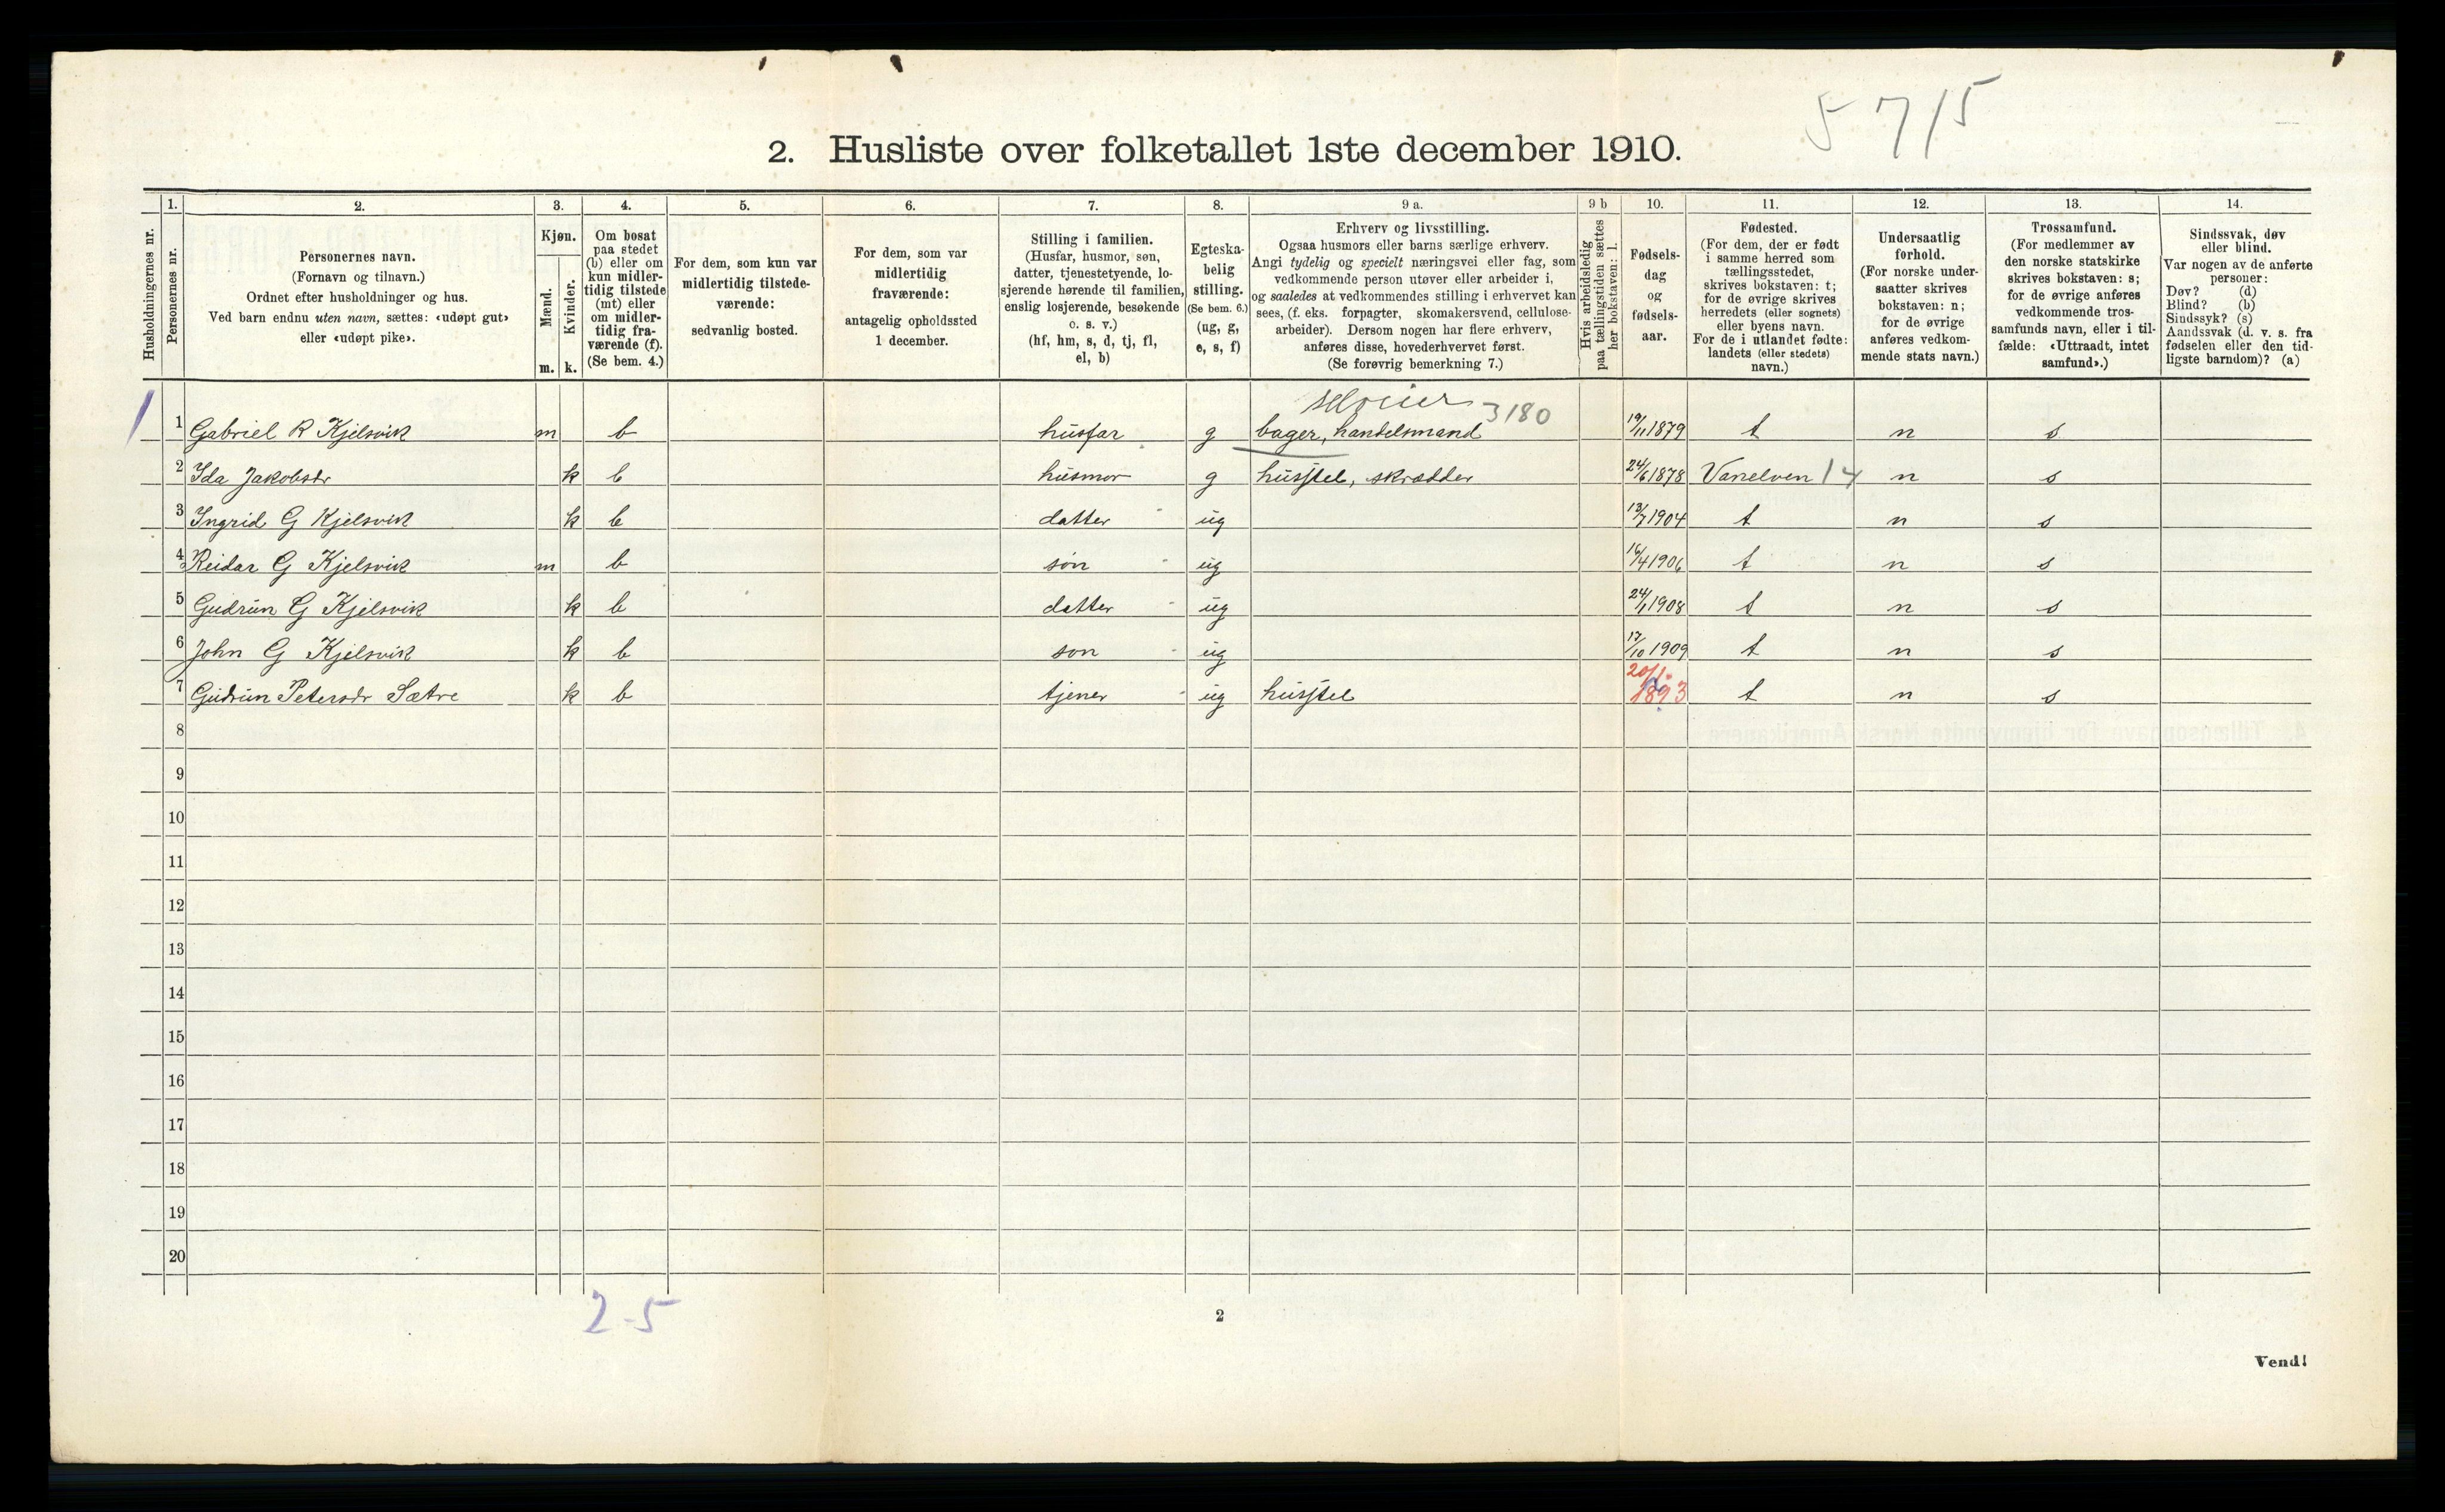 5715
2. Husliste over folketallet 1ste december 1910.
Husholdningernes nr.
1. 2. 3. 4. 5. 6. 7. 8. 9 a. 9 b 10. 11. 12. 13. 14.
Personernes nr.
Personernes navn.
(Fornavn og tilnavn.)
Ordnet efter husholdninger og hus.
Ved barn endnu uten navn, sættes: «udøpt gut»
eller «udøpt pike».
Kjøn.
Mænd.
Kvinder.
m. k.
Om bosat
paa stedet
(b) eller om
kun midler-
tidig tilstede
(mt) eller
om midler-
tidig fra-
værende (f).
(Se bem. 4.)
For dem, som kun var
midlertidig tilstede-
værende:
sedvanlig bosted.
For dem, som var
midlertidig
fraværende:
antagelig opholdssted
1 december.
Stilling i familien.
(Husfar, husmor, søn,
datter, tjenestetyende, lo-
sjerende hørende til familien,
enslig losjerende, besøkende
o. s. v.)
(hf, hm, s, d, tj, fl,
el, b)
Egteska-
belig
stilling.
(Se bem. 6.)
(ug, g,
e, s, f)
Erhverv og livsstilling.
Ogsaa husmors eller barns særlige erhverv.
Angi tydelig og specielt næringsvei eller fag, som
vedkommende person utøver eller arbeider i,
og saaledes at vedkommendes stilling i erhvervet kan
sees, (f. eks. forpagter, skomakersvend, cellulose-
arbeider). Dersom nogen har flere erhverv,
anføres disse, hovederhvervet først.
(Se forøvrig bemerkning 7.)
Hvis arbeidsledig
paa tællingstiden sættes
her bokstaven: l.
Fødsels-
dag
og
fødsels-
aar.
Fødested.
(For dem, der er født
i samme herred som
tællingsstedet,
skrives bokstaven: t;
for de øvrige skrives
herredets (eller sognets)
eller byens navn.
For de i utlandet fødte:
landets (eller stedets)
navn.)
Undersaatlig
forhold.
(For norske under-
saatter skrives
bokstaven: n;
for de øvrige
anføres vedkom-
mende stats navn.)
Trossamfund.
(For medlemmer av
den norske statskirke
skrives bokstaven: s;
for de øvrige anføres
vedkommende tros-
samfunds navn, eller i til-
fælde: «Uttraadt, intet
samfund».)
Sindssvak, døv
eller blind.
Var nogen av de anførte
personer:
Døv? (d)
Blind? (b)
Sindssyk? (s)
Aandssvak (d. v. s. fra
fødselen eller den tid-
ligste barndom)? (a)
selveier 3180
1 1 Gabriel R Kjelsvik m b husfar g bager, handelsmand 19/11 1879 t n s
2 Ida Jakobsdr k b husmor g husstel, skrædder 24/6 1878 Vanelven 14 n s
3 Ingrid G Kjelsvik k b datter ug 13/7 1904 t n s
4 Reidar G Kjelsvik m b søn ug 16/4 1906 t n s
5 Gudrun G Kjelsvik k b datter ug 24/1 1908 t n s
6 John G Kjelsvik k b søn ug 17/10 1909 t n s
7 Gudrun Petersdr Sætre k b tjener ug husstel 20/1 1893 t n s
8
9
10
11
12
13
14
15
16
17
18
19
20
2-5
2
Vend!